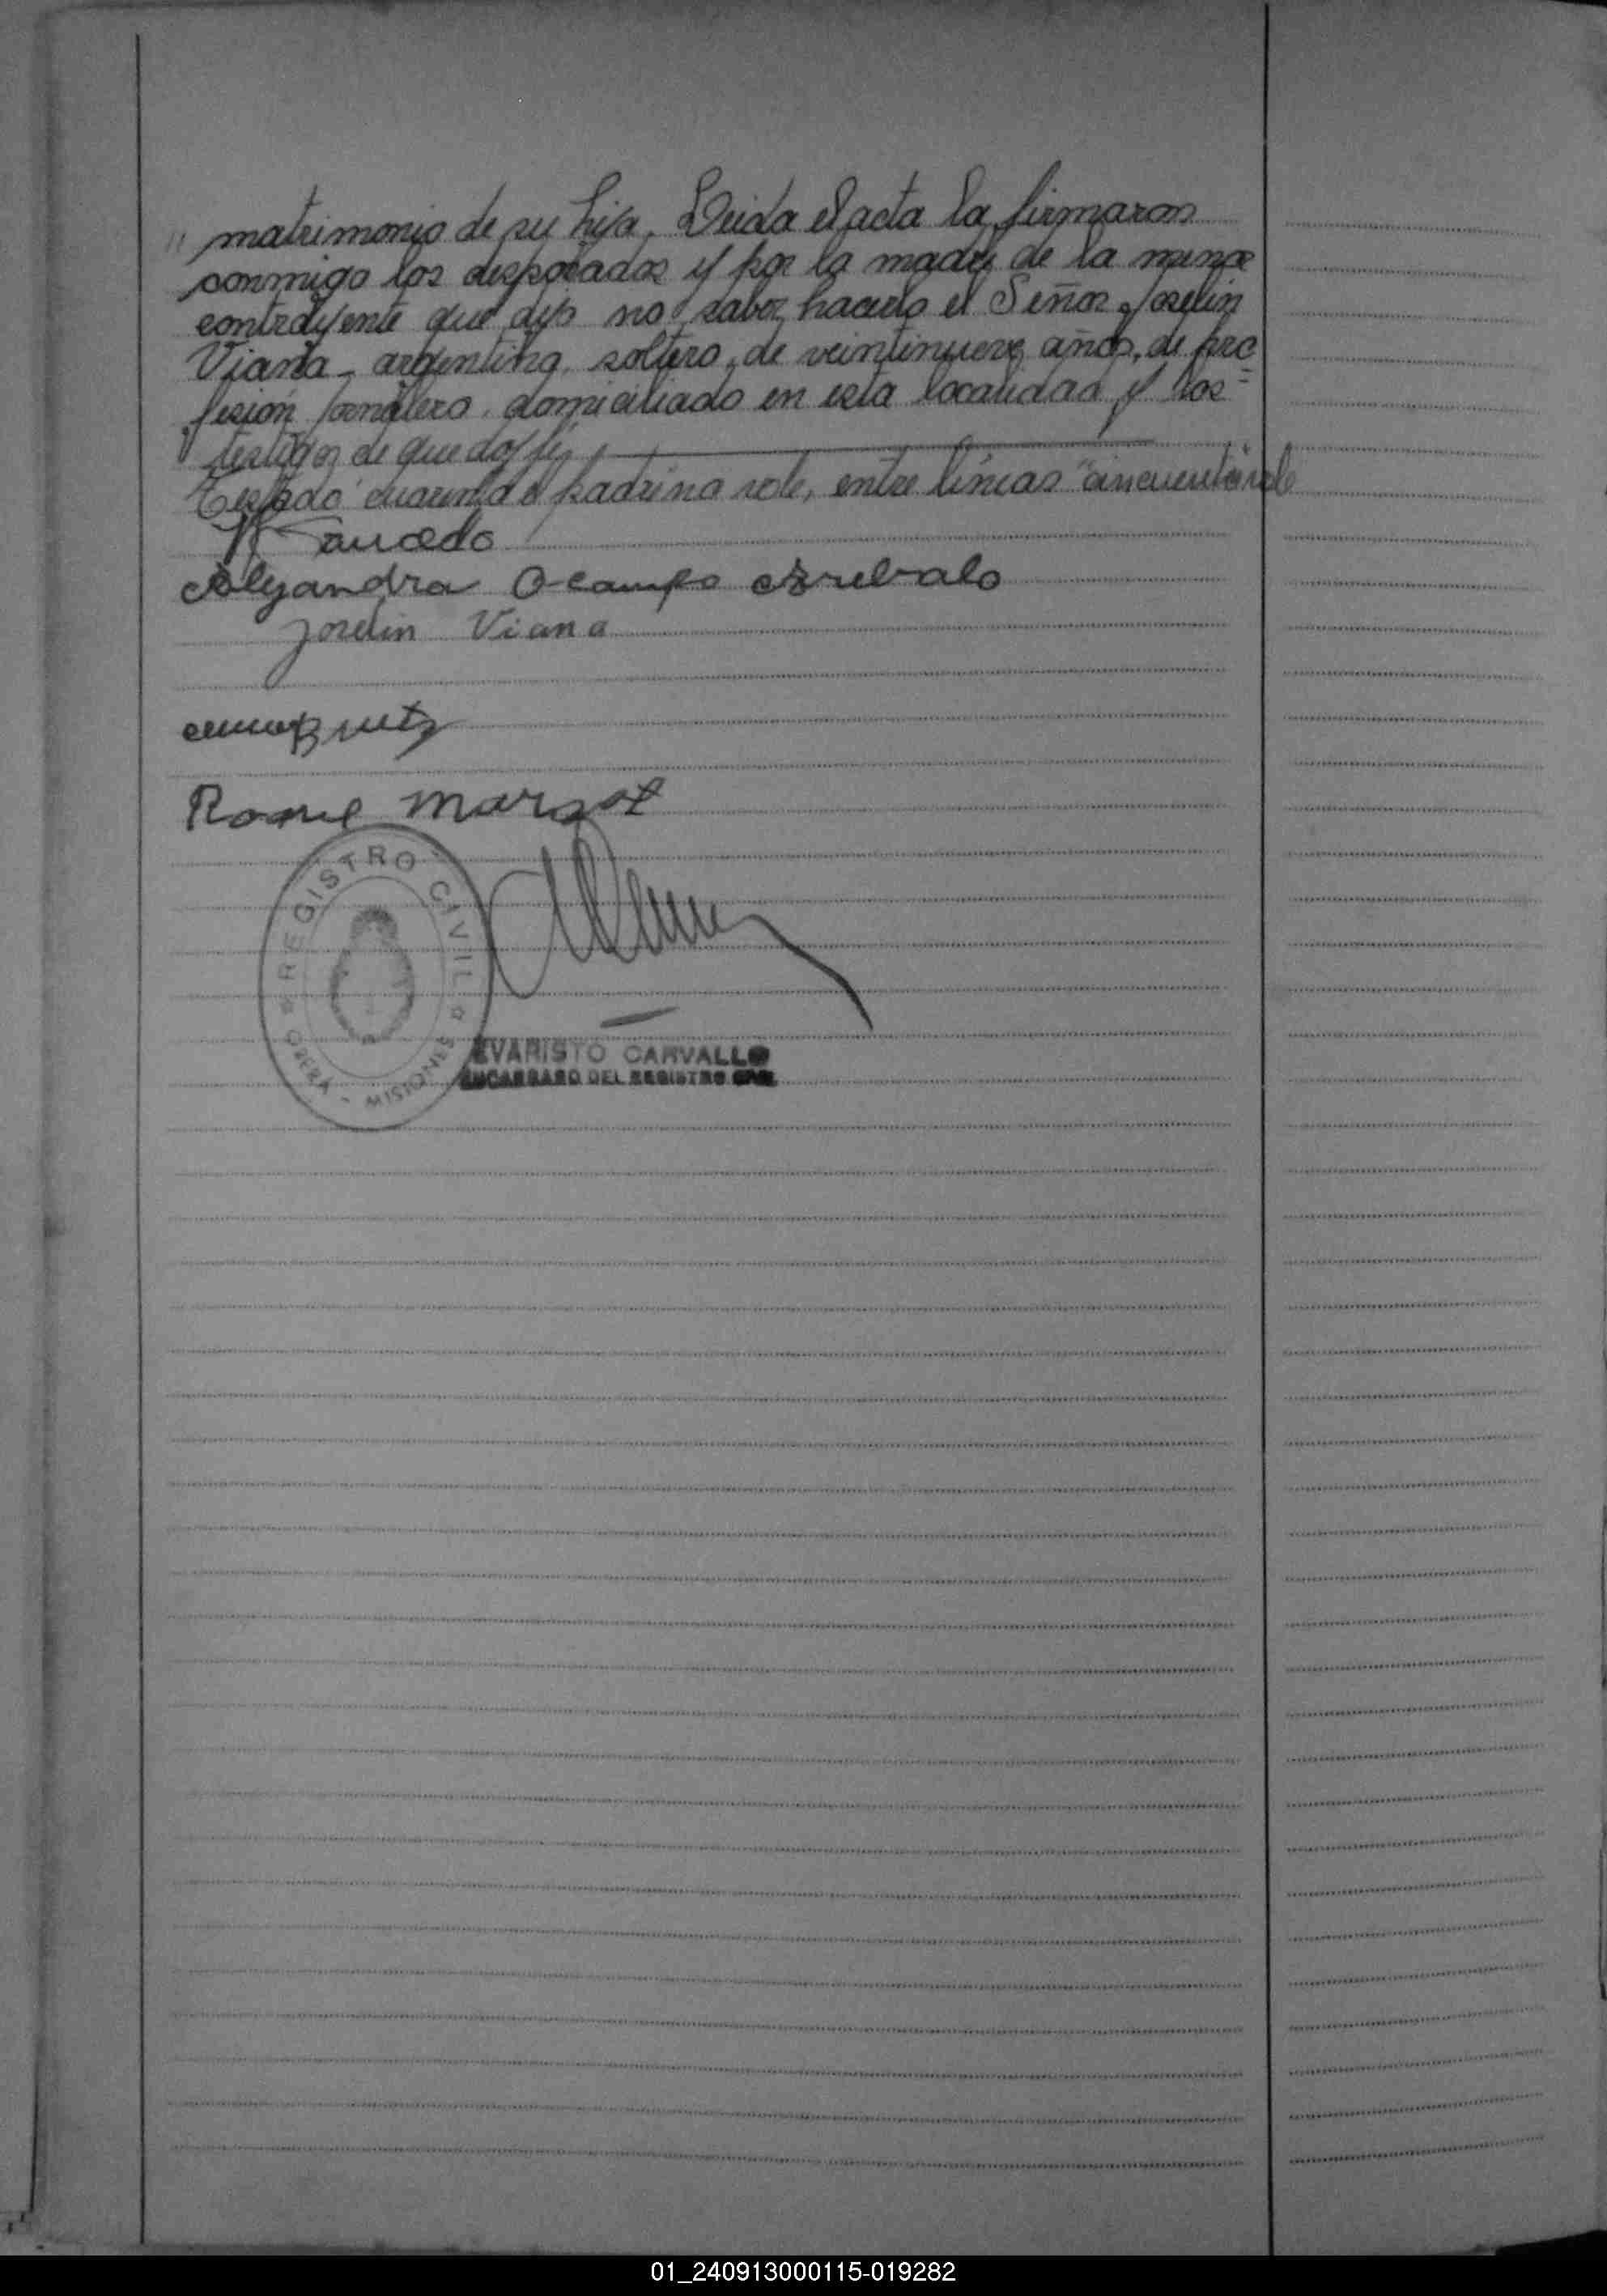 " matrimonio de su hija. Leida el acta la firmaron
conmigo los desposados y por la madre de la menor
contrayente que dijo no saber hacerlo el Señor Joselin
Viana, argentino, soltero, de veintinueve años, de pro
fesión jornalero, domiciliado en esta localidad y los
testigos de que doy fe,
Testado cuarenta padrino vale, entre líneas "cincuenta vale
Alejandra Ocampo Arebalo
Joselin Viana
Margot
REGISTRO CIVIL
OBERA - MISIONES
EVARISTO CARVALLO
ENCARGADO DEL REGISTRO CIVIL
01_240913000115-019282